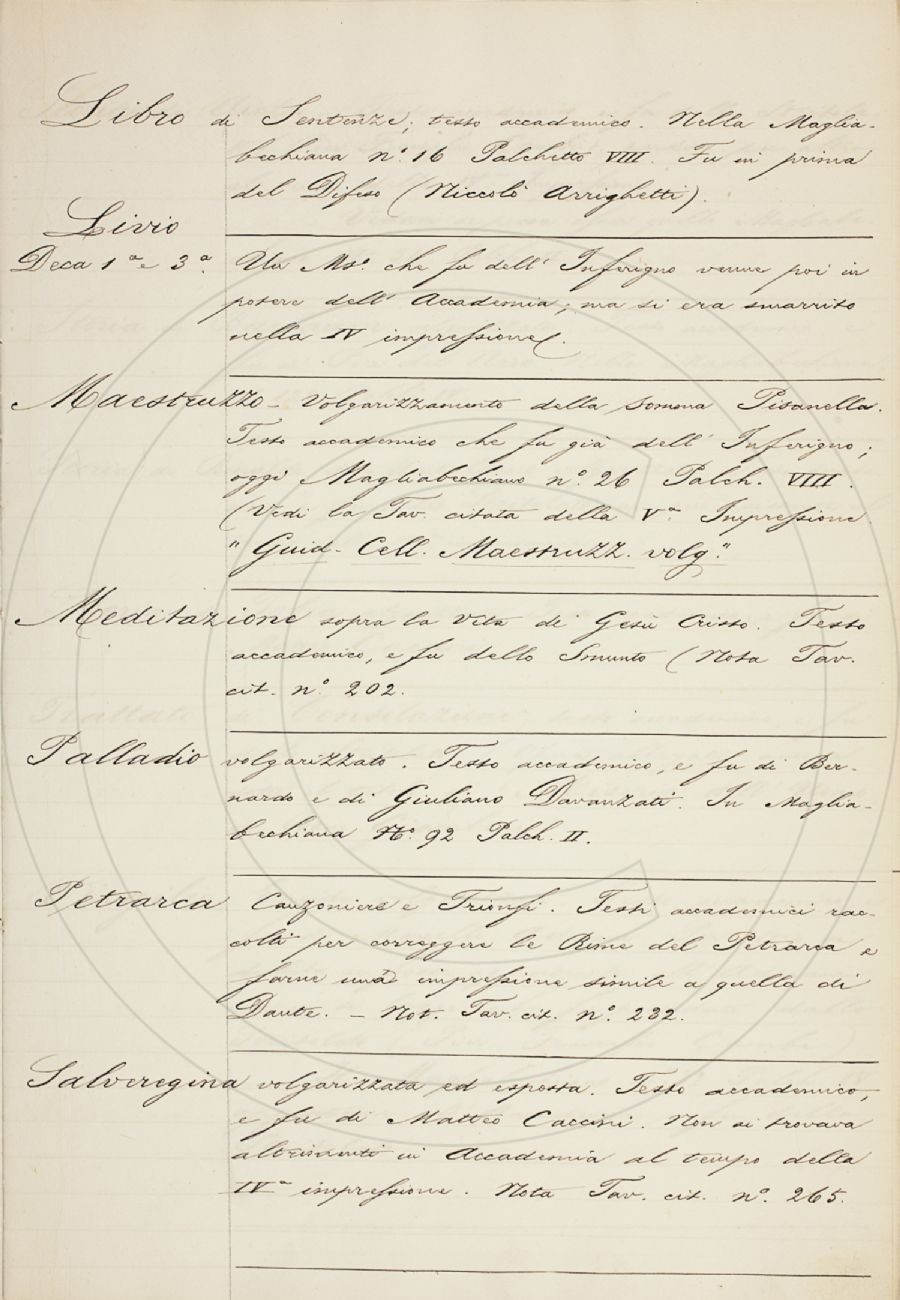 Libro di Sentenze; testo accademico. Nella Maglia-
bechiana n.° 16 Palchetto VIII. Fu in prima
del Difeso (Niccolò Arrighetti).
Livio
Deca 1ª e 3ª. Un Ms. che fu dell' Inferigno venne poi in
potere dell' Accademia; ma si era smarrito
nella IV impressione.
Maestruzzo - Volgarizzamento della Somma Pisanella.
Testo accademico che fu già dell' Inferigno;
oggi Magliabechiano n.° 26 Palch. VIIII.
(Vedi la Tav. citata della Vª Impressione
"Guid. Cell. Maestruzz. volg."
Meditazione sopra la Vita di Gesù Cristo. Testo
accademico, e fu dello Smunto (Nota Tav.
cit. n.° 202.
Palladio volgarizzato. Testo accademico, e fu di Ber-
nardo e di Giuliano Davanzati. In Maglia-
bechiana N.° 92 Palch. II.
Petrarca Canzoniere e Trionfi. Testi accademici rac-
colti per correggere le Rime del Petrarca e
farne una impressione simile a quella di
Dante. - Not. Tav. cit. n.° 232.
Salveregina volgarizzata ed esposta. Testo accademico,
e fu di Matteo Caccini. Non si trovava
altrimenti in Accademia al tempo della
IVª impressione. Nota Tav. cit. n.° 265.